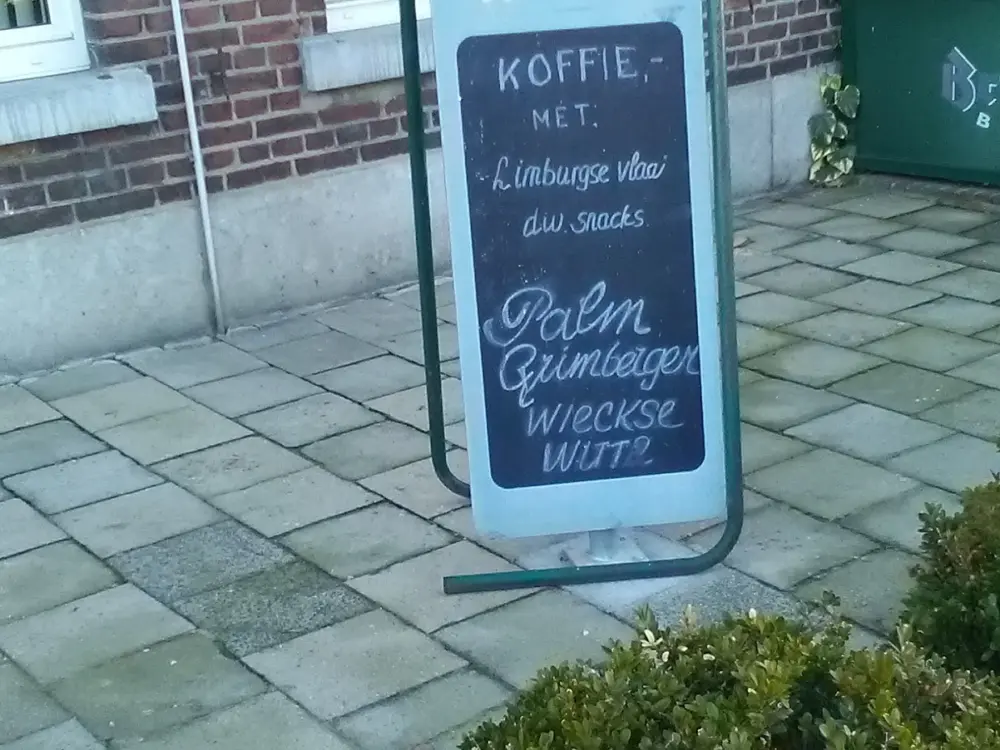 KOFFIE,-
MET:
Limburgse vlaai
d.w. snacks
Palm
Grimberger
WIECKSE
WITTE
B